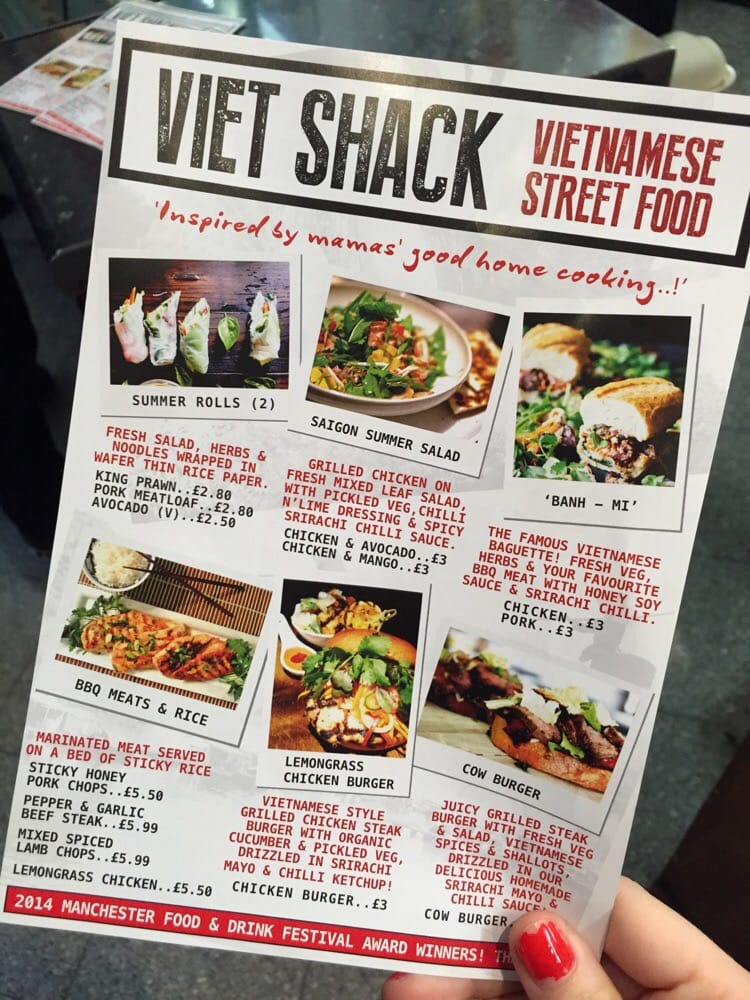 VIET SHACK
VIETNAMESE
STREET FOOD
'Inspired by mamas' good home cooking..!'
SUMMER ROLLS (2)
FRESH SALAD, HERBS &
NOODLES WRAPPED IN
WAFER THIN RICE PAPER.
KING PRAWN..£2.80
PORK MEATLOAF..£2.80
AVOCADO (V)..£2.50
SAIGON SUMMER SALAD
GRILLED CHICKEN ON
FRESH MIXED LEAF SALAD,
WITH PICKLED VEG,CHILLI
N'LIME DRESSING & SPICY
SRIRACHI CHILLI SAUCE.
CHICKEN & AVOCADO..£3
CHICKEN & MANGO..£3
'BANH – MI'
THE FAMOUS VIETNAMESE
BAGUETTE! FRESH VEG,
HERBS & YOUR FAVOURITE
BBQ MEAT WITH HONEY SOY
SAUCE & SRIRACHI CHILLI.
CHICKEN..£3
PORK..£3
BBQ MEATS & RICE
MARINATED MEAT SERVED
ON A BED OF STICKY RICE
STICKY HONEY
PORK CHOPS..£5.50
PEPPER & GARLIC
BEEF STEAK..£5.99
MIXED SPICED
LAMB CHOPS..£5.99
LEMONGRASS CHICKEN..£5.50
LEMONGRASS
CHICKEN BURGER
VIETNAMESE STYLE
GRILLED CHICKEN STEAK
BURGER WITH ORGANIC
CUCUMBER & PICKLED VEG,
DRIZZLED IN SRIRACHI
MAYO & CHILLI KETCHUP!
CHICKEN BURGER..£3
COW BURGER
JUICY GRILLED STEAK
BURGER WITH FRESH VEG
& SALAD, VIETNAMESE
SPICES & SHALLOTS,
DRIZZLED IN OUR
DELICIOUS HOMEMADE
SRIRACHI MAYO &
CHILLI SAUCE!
COW BURGER..
2014 MANCHESTER FOOD & DRINK FESTIVAL AWARD WINNERS!